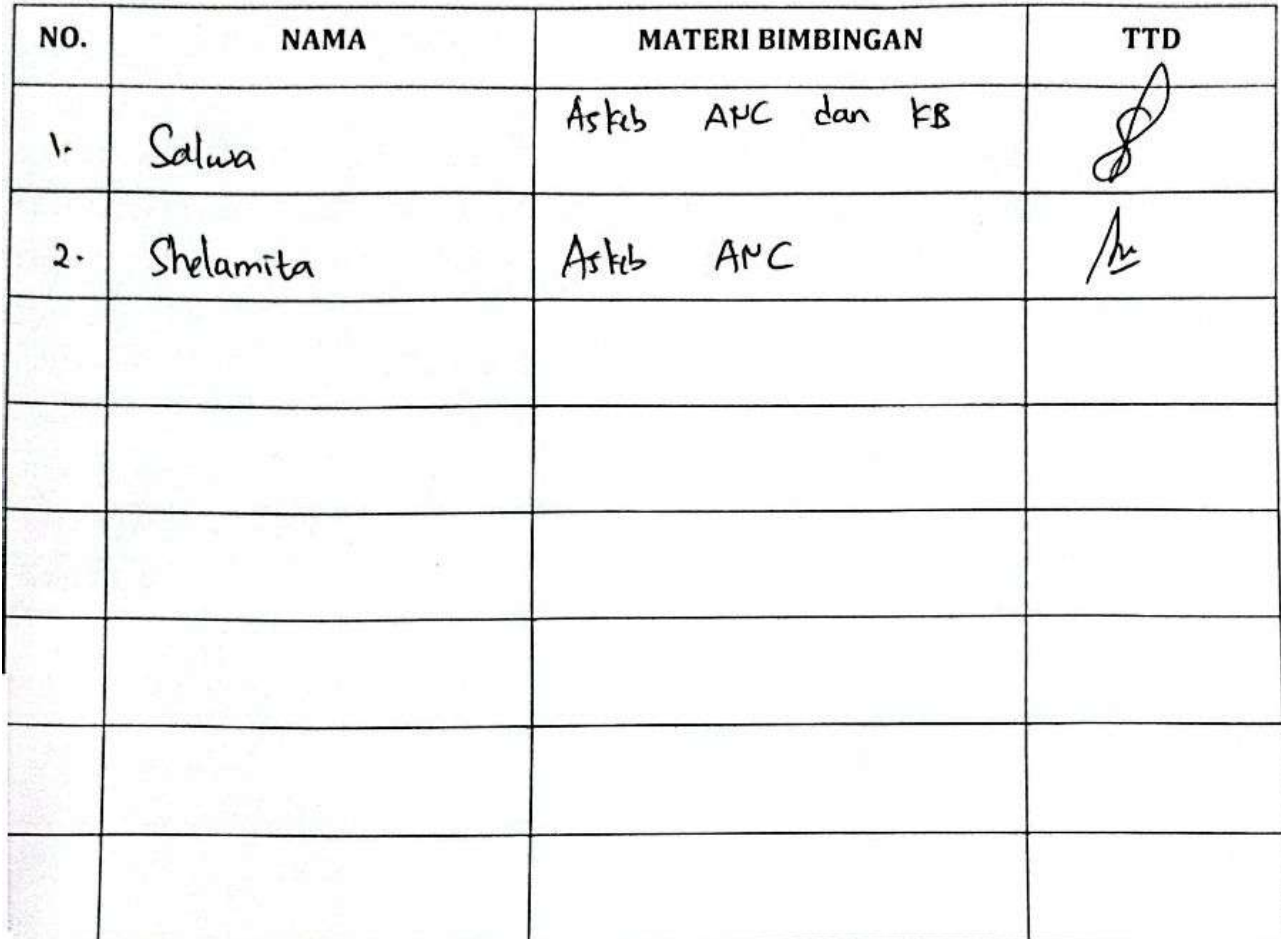 NO. NAMA MATERI BIMBINGAN TTD
1. Salwa Askeb ANC dan KB
2. Shelamita Askeb ANC